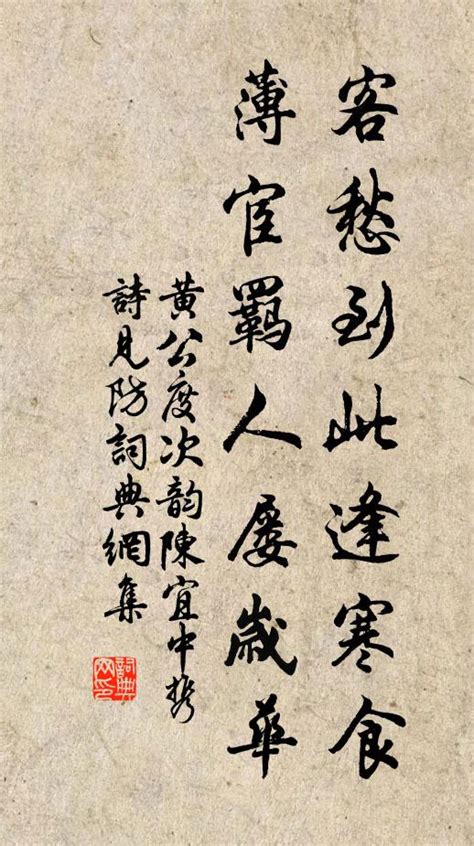 客愁到此逢寒食
薄宦羁人屡歲華
黃公度次韵陳宜中攜
詩見防詞典網集
詞典網印